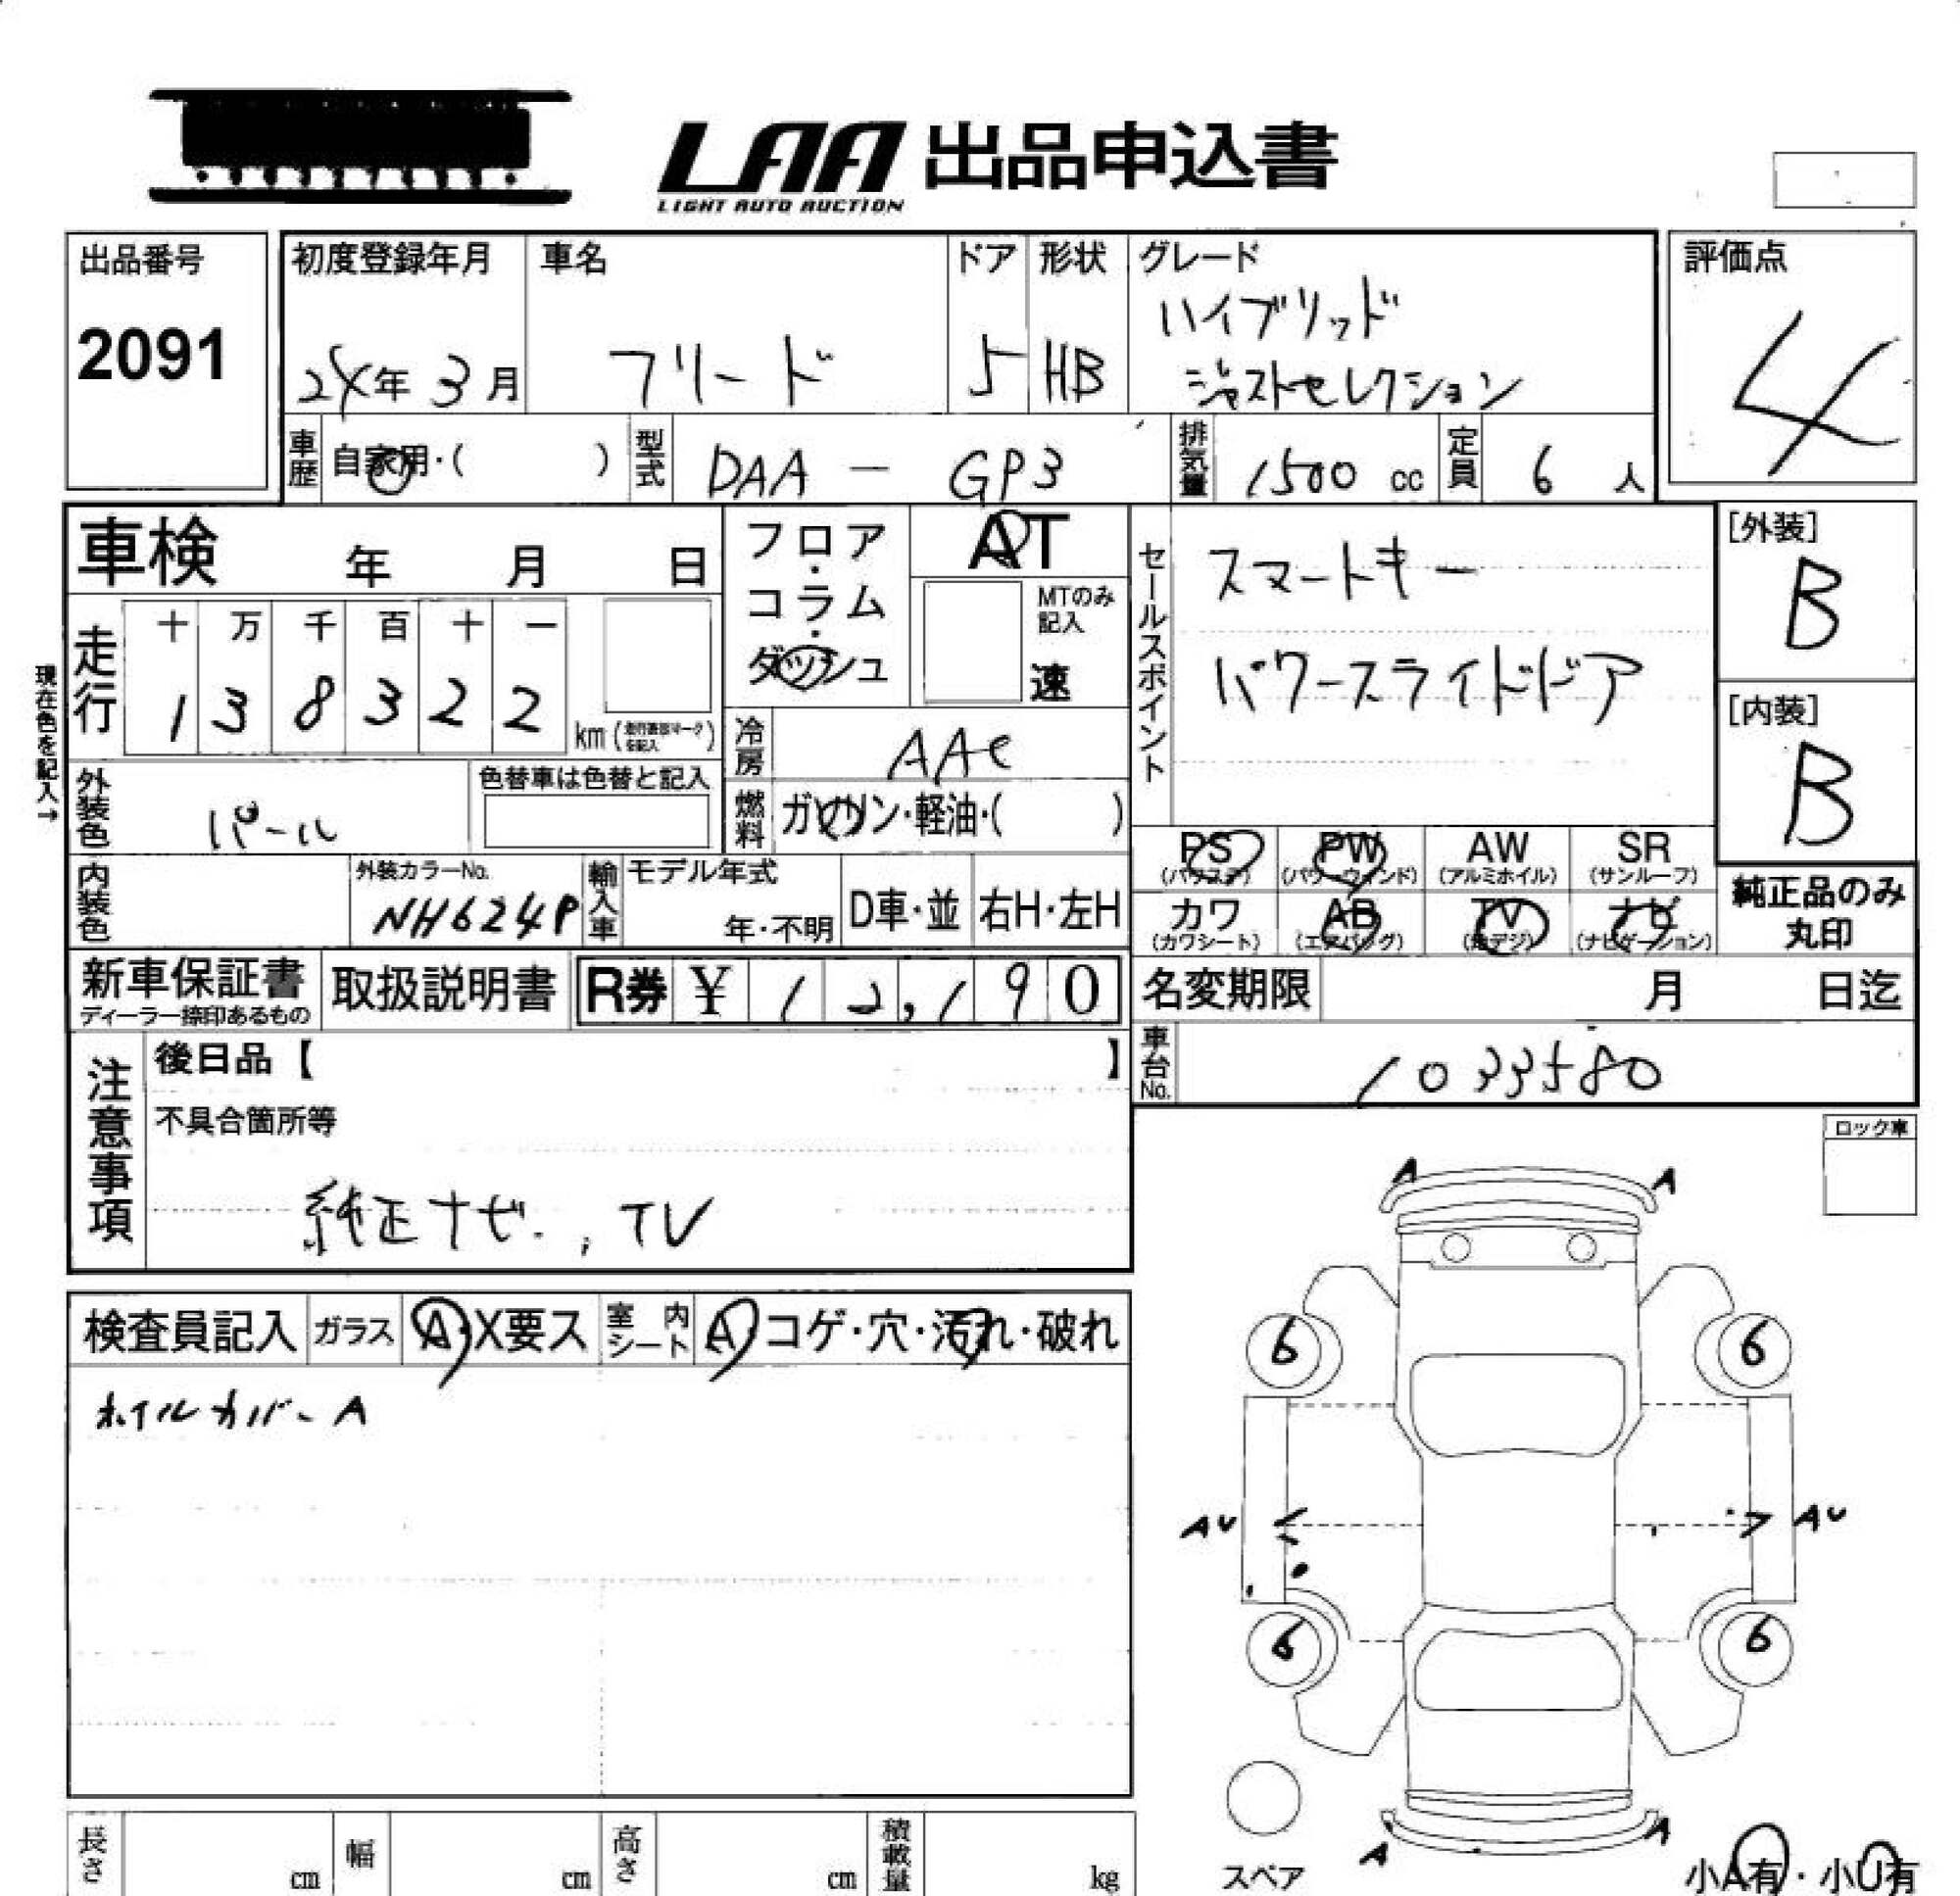 LAA 出品申込書
LIGHT AUTO AUCTION
出品番号
2091
初度登録年月
24年 3月
車名
フリード
ドア
5
形状
HB
グレード
ハイブリッド
ジャストセレクション
評価点
4
車歴 自家用・( )
型式 DAA - GP3
排気量 1500 cc
定員 6 人
車検 年 月 日
フロア・コラム・ダッシュ
AT
MTのみ記入
速
セールスポイント
スマートキー
パワースライドドア
[外装]
B
[内装]
B
現在色を記入→
走行
十 万 千 百 十 一
1 3 8 3 2 2
km (走行要部マークを記入)
冷房 AAC
燃料 ガソリン・軽油・( )
外装色 パール
色替車は色替と記入
内装色
外装カラーNo.
NH624P
輸入車
モデル年式
年・不明
D車・並
右H・左H
PS (パワステ)
PW (パワーウィンド)
AW (アルミホイル)
SR (サンルーフ)
カワ (カワシート)
AB (エアバッグ)
TV (地デジ)
ナビ (ナビゲーション)
純正品のみ
丸印
新車保証書
ディーラー捺印あるもの
取扱説明書
R券 ¥ 12,190
名変期限 月 日迄
車台No. 1033580
注意事項
後日品【 】
不具合箇所等
純正ナビ、TV
ロック車
検査員記入
ガラス A・X要ス
室内シート A・コゲ・穴・汚れ・破れ
ホイルカバーA
A A
6 6
AU AU
6 6
A A
スペア
小A有・小U有
長さ cm
幅 cm
高さ cm
積載量 kg